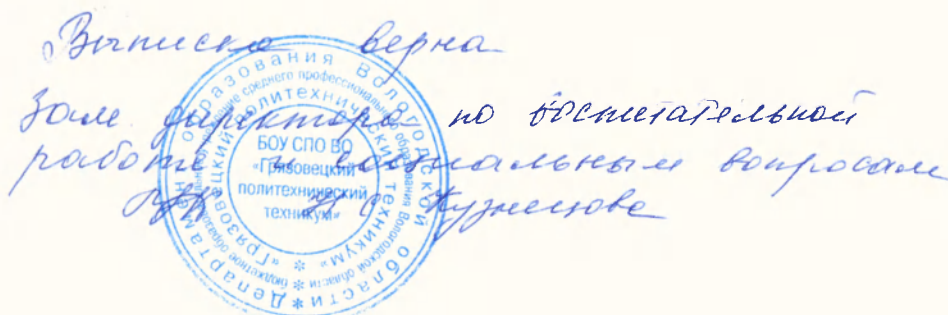 Выписка верна
Зам директора по воспитательной
работе и социальным вопросам
Кузнецова
Департамент образования Вологодской области
бюджетное образовательное учреждение среднего профессионального образования Вологодской области
«Грязовецкий политехнический техникум»
БОУ СПО ВО
«Грязовецкий
политехнический
техникум»